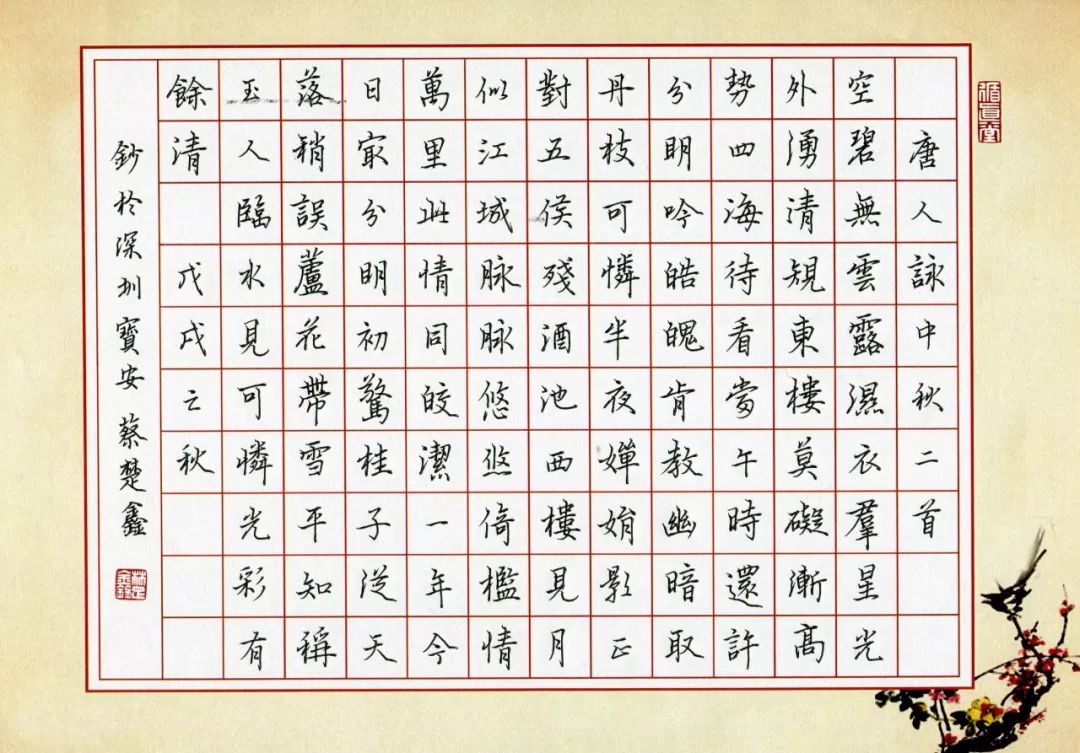 唐人詠中秋二首
空碧無雲露濕衣羣星光
外湧清規東樓莫礙漸高
勢四海待看當午時還許
分明吟皓魄肯教幽暗取
丹枝可憐半夜嬋娟影正
對五侯殘酒池西樓見月
似江城脉脉悠悠倚檻情
萬里此情同皎潔一年今
日冣分明初驚桂子從天
落稍誤蘆花帶雪平知稱
玉人臨水見可憐光彩有
餘清 戊戌之秋
鈔於深圳寶安蔡楚鑫